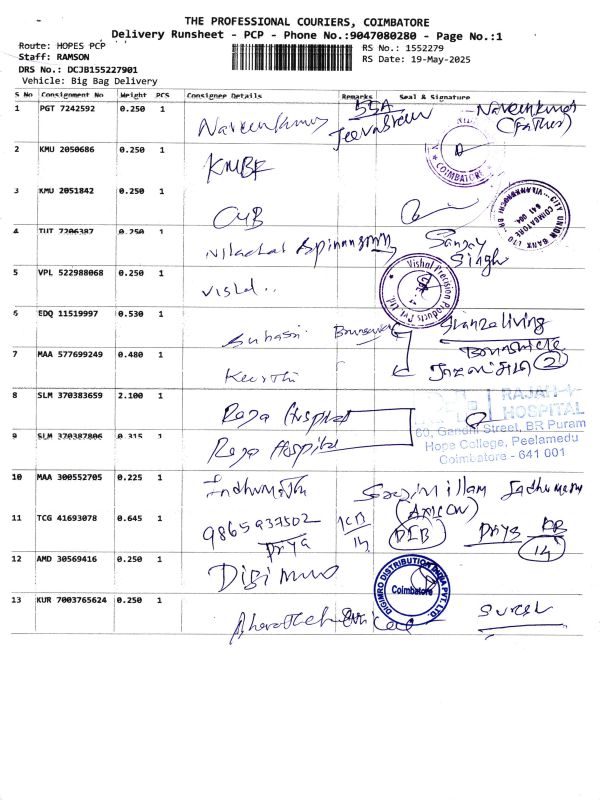 THE PROFESSIONAL COURIERS, COIMBATORE
Delivery Runsheet - PCP - Phone No.:9047080280 - Page No.:1
Route: HOPES PCP
RS No.: 1552279
Staff: RAMSON
RS Date: 19-May-2025
DRS No.: DCJB155227901
Vehicle: Big Bag Delivery
S No Consignment No Weight PCS Consignee Details Remarks Seal & Signature
1 PGT 7242592 0.250 1 Naveenkumar (Father)
2 KMU 2050686 0.250 1 KMBF COIMBATORE
3 KMU 2051842 0.250 1 CUB CITY UNION BANK LTD COIMBATORE 641 004
4 TUT 7206387 0.250 1 Nilachal Spinning Sanjay Singh
5 VPL 522988068 0.250 1 Vishal.. Vishal Precision Products Pvt Ltd
6 EDQ 11519997 0.530 1 Suhasri Stanzaliving
7 MAA 577699249 0.480 1 Keerthi 2
8 SLM 370383659 2.100 1 Raja Hospital RAJAH HOSPITAL
60, Gandhi Street, BR Puram
9 SLM 370387806 0.315 1 Raja Hospital Hope College, Peelamedu
Coimbatore - 641 001
10 MAA 300552705 0.225 1 Indhumathi
11 TCG 41693078 0.645 1 9865937502 Priya Priya 14
12 AMD 30569416 0.250 1 Digimro DIGIMRO DISTRIBUTION INDIA PVT. LTD. Coimbatore
13 KUR 7003765624 0.250 1 Suresh